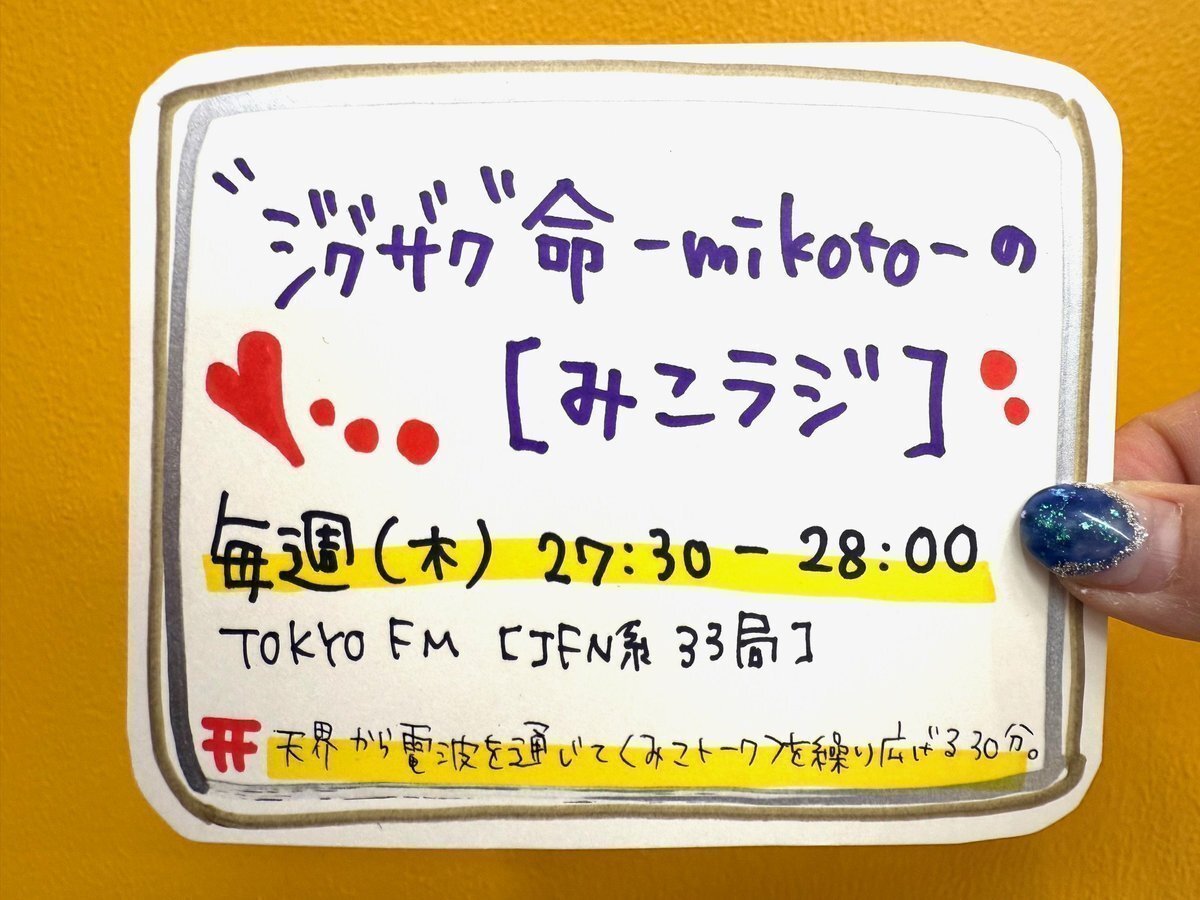 "ジグザグ"命-mikoto-の
[みこラジ]
毎週(木) 27:30-28:00
TOKYO FM [JFN系 33局]
天界から電波を通じて〈みこトーク〉を繰り広げる30分。